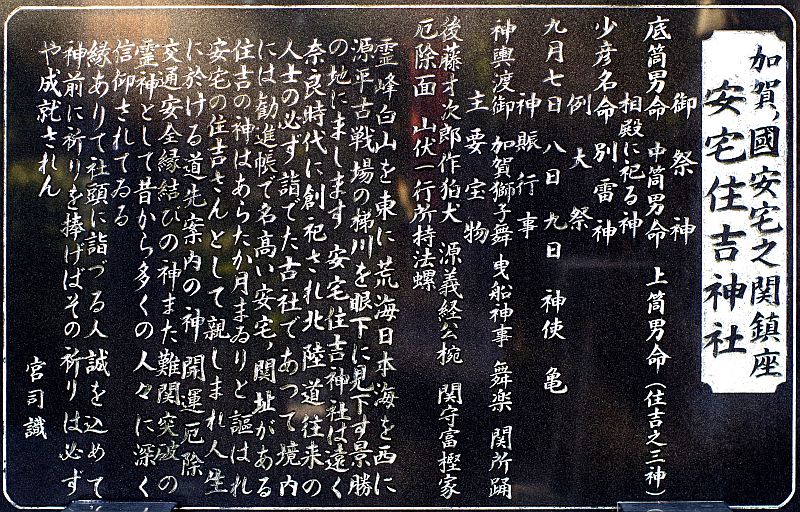 加賀ノ國安宅之関鎮座
安宅住吉神社
御祭神
底筒男命 中筒男命 上筒男命(住吉之三神)
相殿に祀る神
少彦名命 別雷神
例大祭
九月七日 八日 九日 神使 亀
神賑行事
神輿渡御 加賀獅子舞 曳船神事 舞楽 関所踊
主要宝物
後藤才次郎作狛犬 源義経公椀 関守富樫家
厄除面 山伏一行所持法螺
霊峰白山を東に荒海日本海を西に
源平古戦場の梯川を眼下に見下す景勝
の地にまします 安宅住吉神社は遠く
奈良時代に創祀され北陸道往来の
人士の必ず詣でた古社であって境内
には勧進帳で名高い安宅ノ関址がある
住吉の神はあらたか月まゐりと謳はれ
安宅の住吉さんとして親しまれ人生
に於ける道先案内の神 開運厄除
交通安全縁結びの神また難関突破の
霊神として昔から多くの人々に深く
信仰されてゐる
縁ありて社頭に詣づる人誠を込めて
神前に祈りを捧げばその祈りは必ず
や成就されん
宮司識